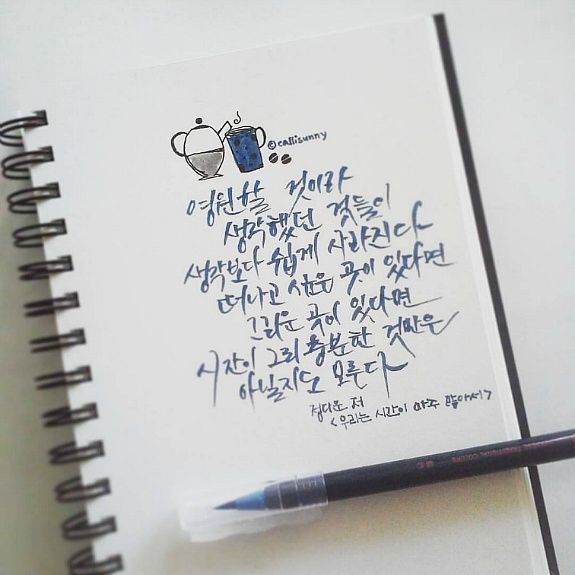 ©callisunny
영원할 것이라
생각했던 것들이
생각보다 쉽게 사라진다
떠나고 싶은 곳이 있다면
그리운 곳이 있다면
시간이 그리 충분한 것만은
아닐지도 모른다
정다운 저
<우리는 시간이 아주 많아서>